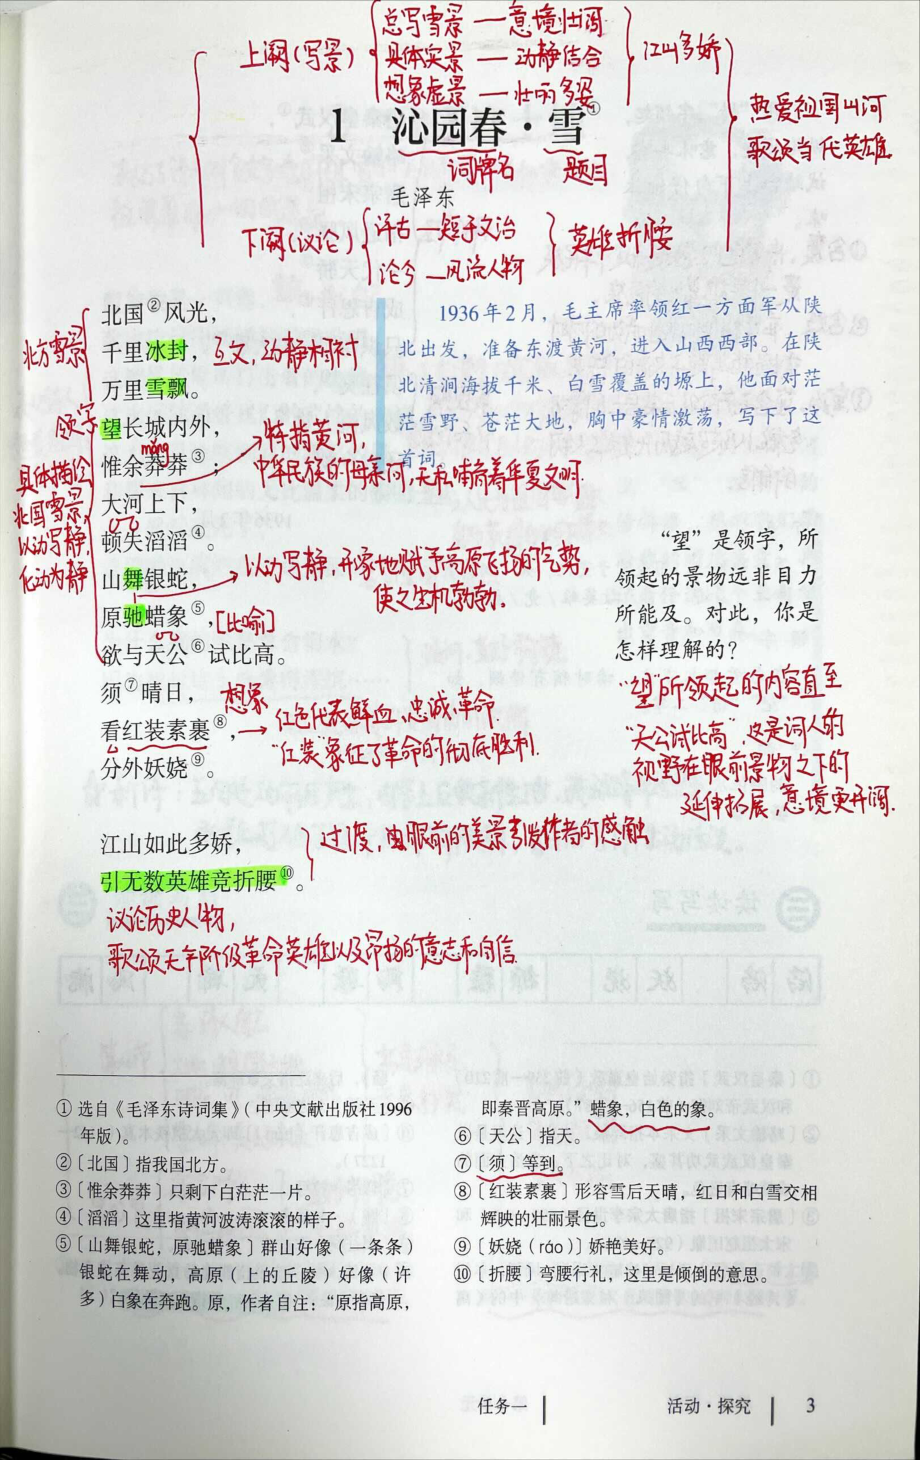 上阕(写景)
总写雪景 — 意境壮阔
具体实景 — 动静结合
想象虚景 — 壮丽多姿
江山多娇
热爱祖国山河
歌颂当代英雄
1 沁园春·雪①
词牌名 题目
毛泽东
下阕(议论)
评古 — 短于文治
论今 — 风流人物
英雄折腰
1936年2月，毛主席率领红一方面军从陕
北出发，准备东渡黄河，进入山西西部。在陕
北清涧海拔千米、白雪覆盖的塬上，他面对茫
茫雪野、苍茫大地，胸中豪情激荡，写下了这
首词。
北国②风光，
北方雪景
千里冰封，
互文，动静相衬
万里雪飘。
领字
望长城内外，
特指黄河，
măng
惟余莽莽③；
中华民族的母亲河，天然哺育着华夏文明.
具体描绘
北国雪景，
以动写静，
化动为静
大河上下，
顿失滔滔④。
山舞银蛇，
以动写静，形象地赋予高原飞扬的气势，
使之生机勃勃。
原驰蜡象⑤，
[比喻]
欲与天公⑥试比高。
须⑦晴日，
想象
看红装素裹⑧，
红色代表鲜血，忠诚，革命.
“红装”象征了革命的彻底胜利.
分外妖娆⑨。
“望”是领字，所
领起的景物远非目力
所能及。对此，你是
怎样理解的？
“望”所领起的内容直至
“天公试比高”，这是词人的
视野在眼前景物之下的
延伸拓展，意境更开阔.
江山如此多娇，
引无数英雄竞折腰⑩。
过渡，由眼前的美景引发作者的感触
议论历史人物，
歌颂无产阶级革命英雄以及昂扬的意志和自信
① 选自《毛泽东诗词集》（中央文献出版社1996
年版）。
②〔北国〕指我国北方。
③〔惟余莽莽〕只剩下白茫茫一片。
④〔滔滔〕这里指黄河波涛滚滚的样子。
⑤〔山舞银蛇，原驰蜡象〕群山好像（一条条）
银蛇在舞动，高原（上的丘陵）好像（许
多）白象在奔跑。原，作者自注：“原指高原，
即秦晋高原。”蜡象，白色的象。
⑥〔天公〕指天。
⑦〔须〕等到。
⑧〔红装素裹〕形容雪后天晴，红日和白雪交相
辉映的壮丽景色。
⑨〔妖娆（ráo）〕娇艳美好。
⑩〔折腰〕弯腰行礼，这里是倾倒的意思。
任务一
活动·探究
3